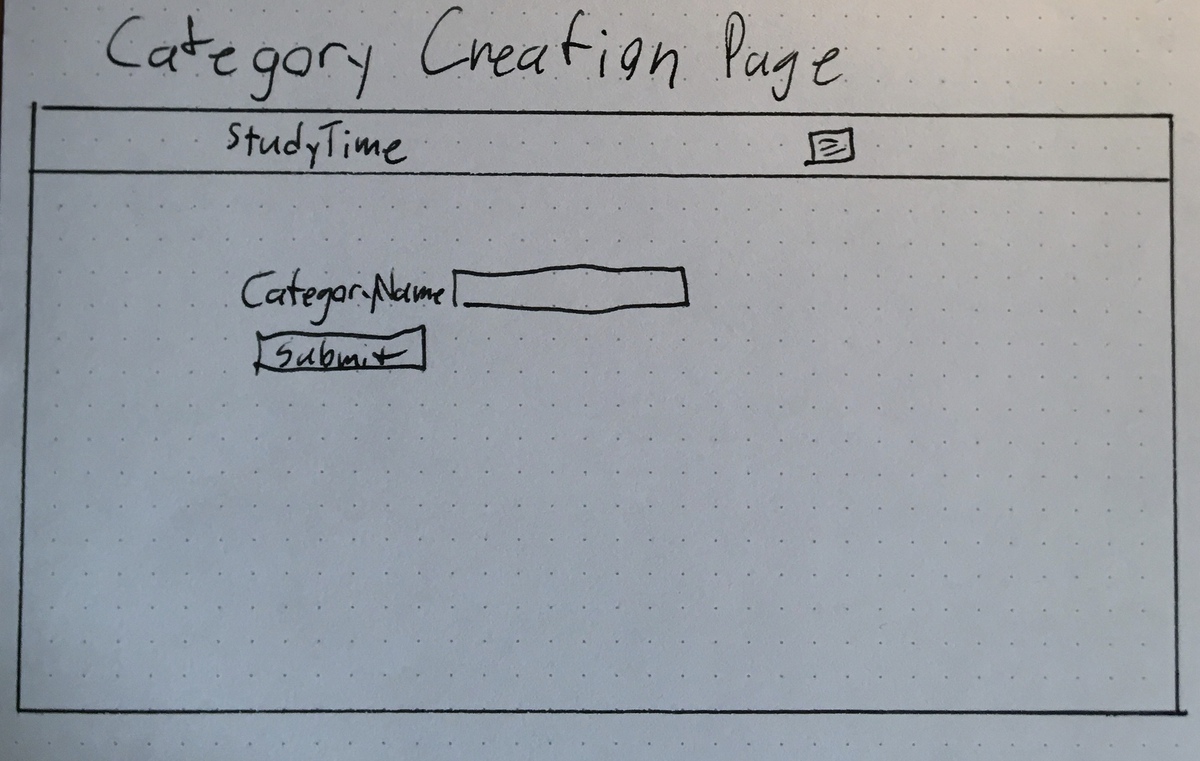 Category Creation Page
StudyTime
Category Name
Submit